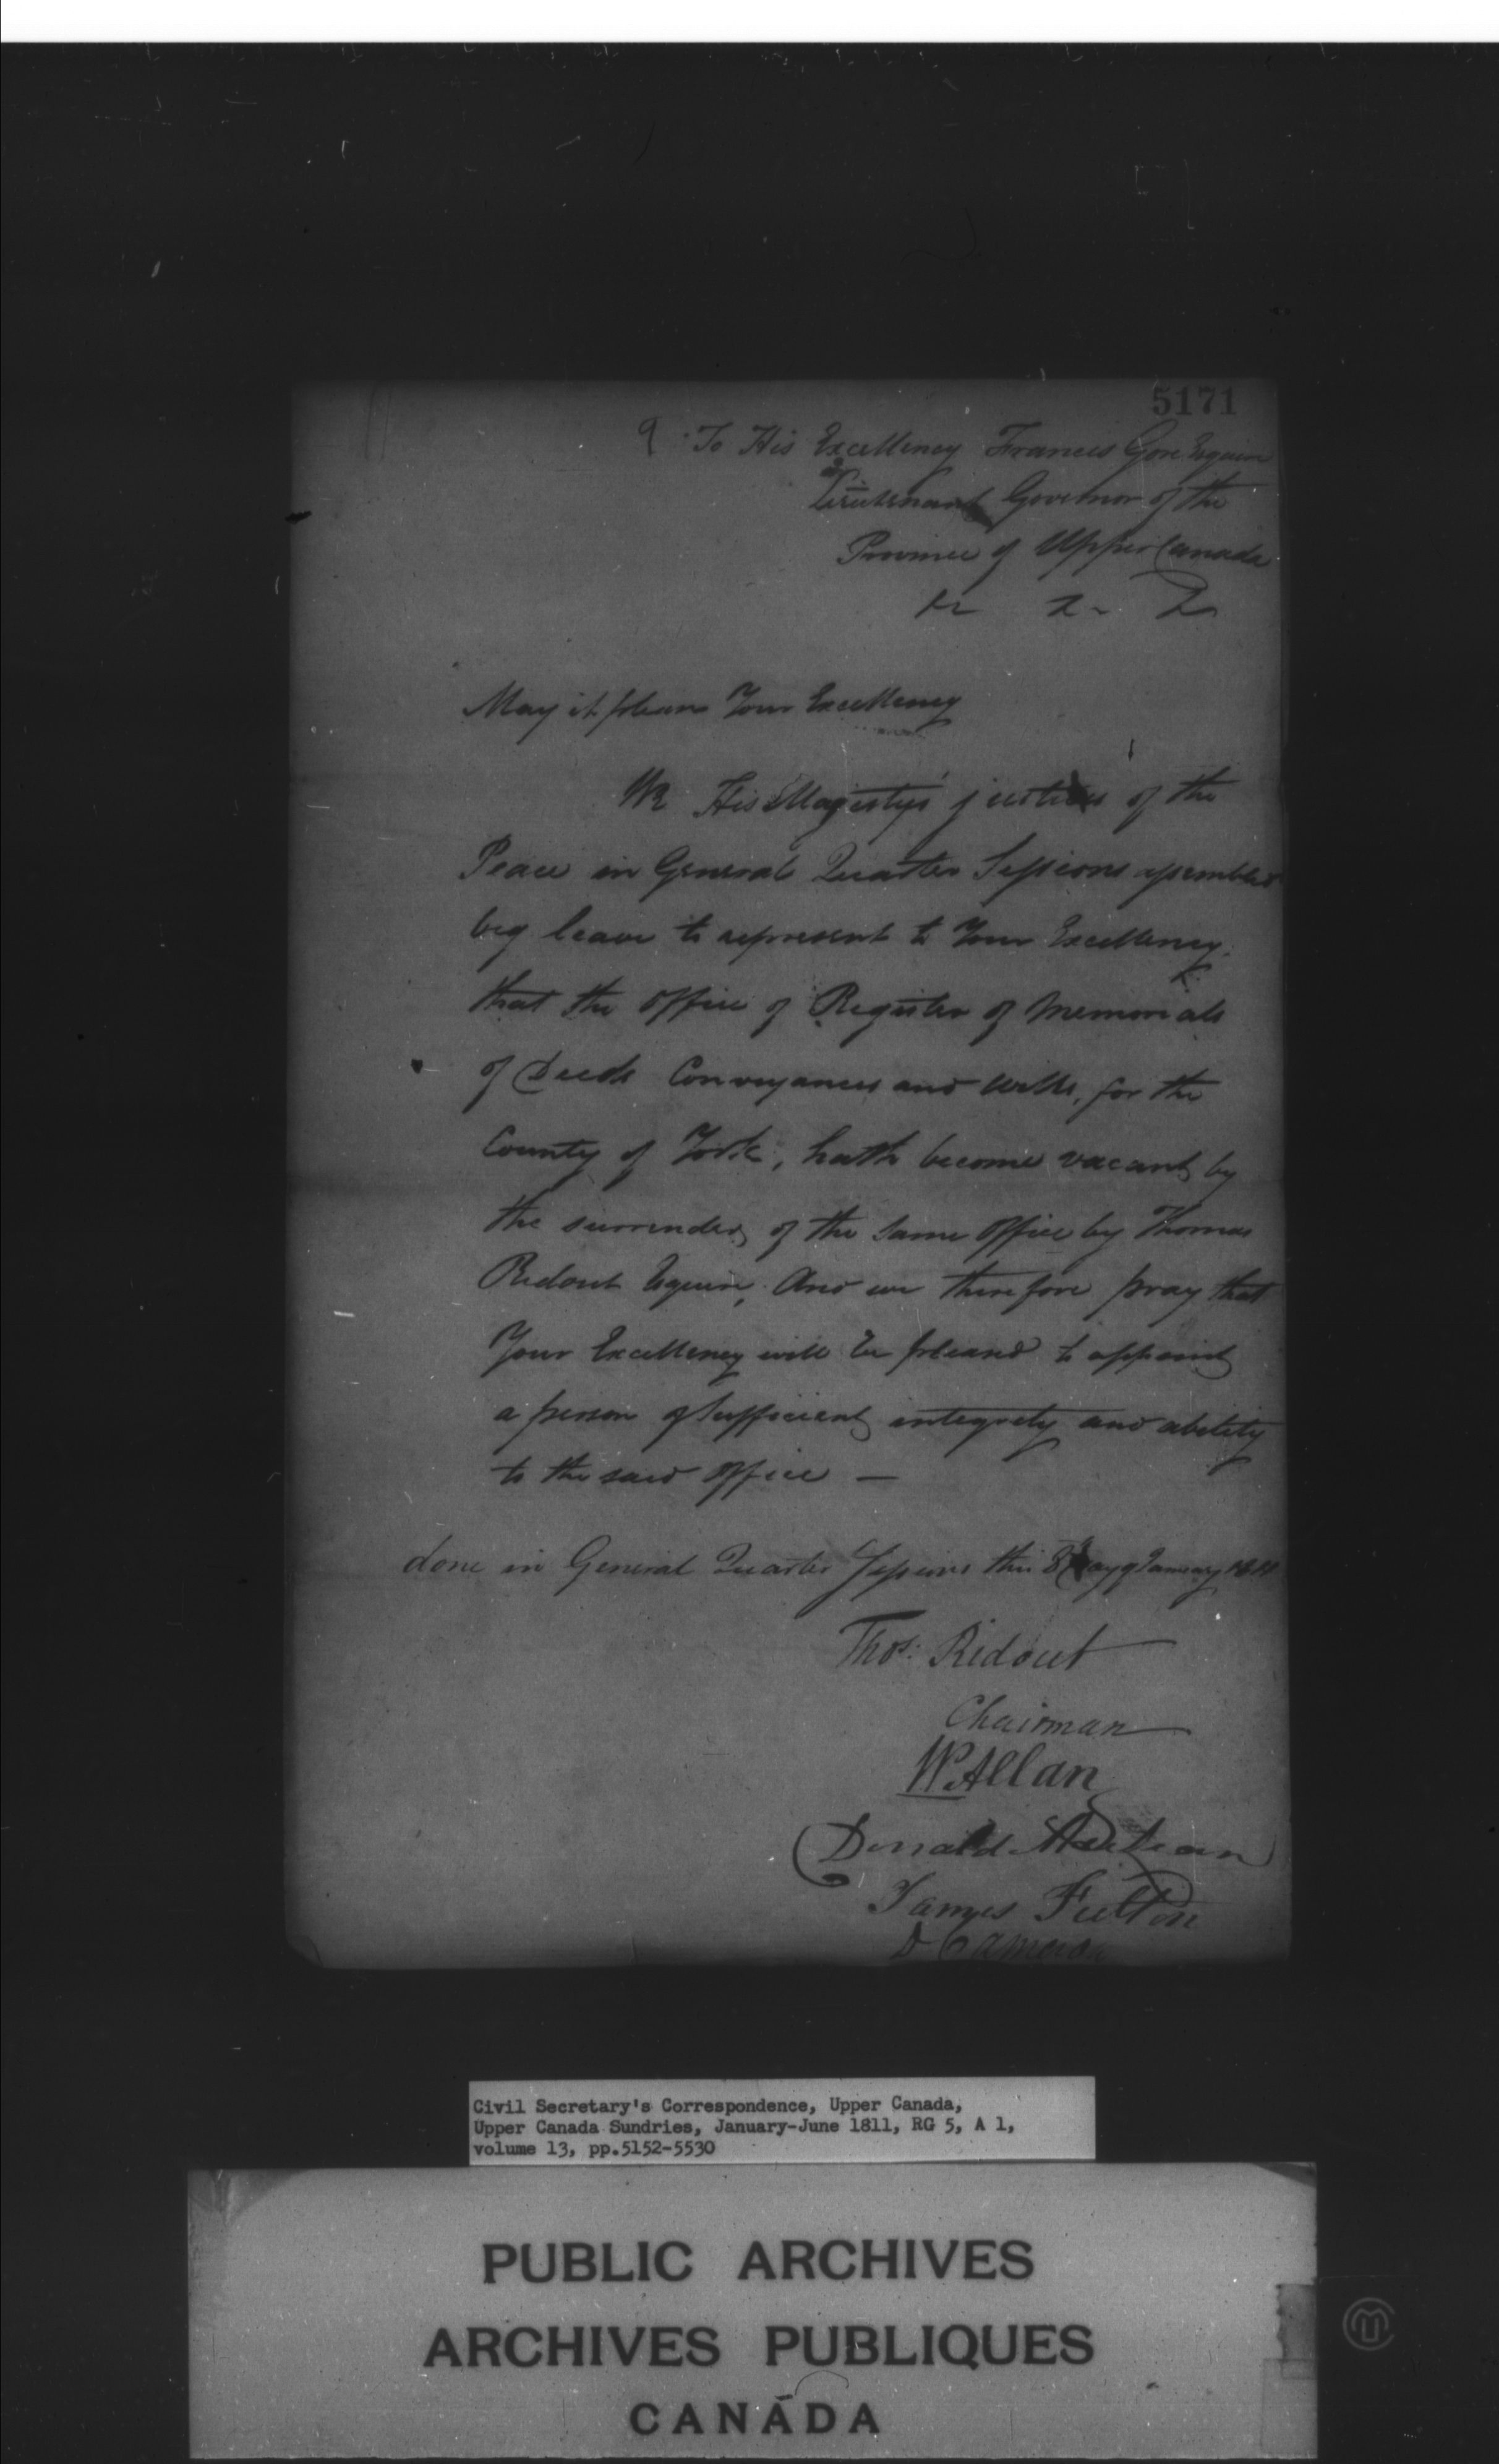 5171
9 To His Excellency Francis Gore Esquire
Lieutenant Governor of the
Province of Upper Canada
&c &c &c
May it please Your Excellency
We His Majesty's justices of the
Peace in General Quarter Sessions assembled
beg leave to represent to Your Excellency
that the Office of Register of Memorials
of Deeds Conveyances and Wills, for the
County of York, hath become vacant by
the surrender of the same Office by Thomas
Ridout Esquire, And we therefore pray that
Your Excellency will be pleased to appoint
a person of sufficient integrety and ability
to the said Office —
done in General Quarter Sessions this 8 day of January 1811
Thos. Ridout
Chairman
W. Allan
Donald McLean
James Fulton
D Cameron
Civil Secretary's Correspondence, Upper Canada,
Upper Canada Sundries, January-June 1811, RG 5, A 1,
volume 13, pp.5152-5530
PUBLIC ARCHIVES
ARCHIVES PUBLIQUES
CANADA